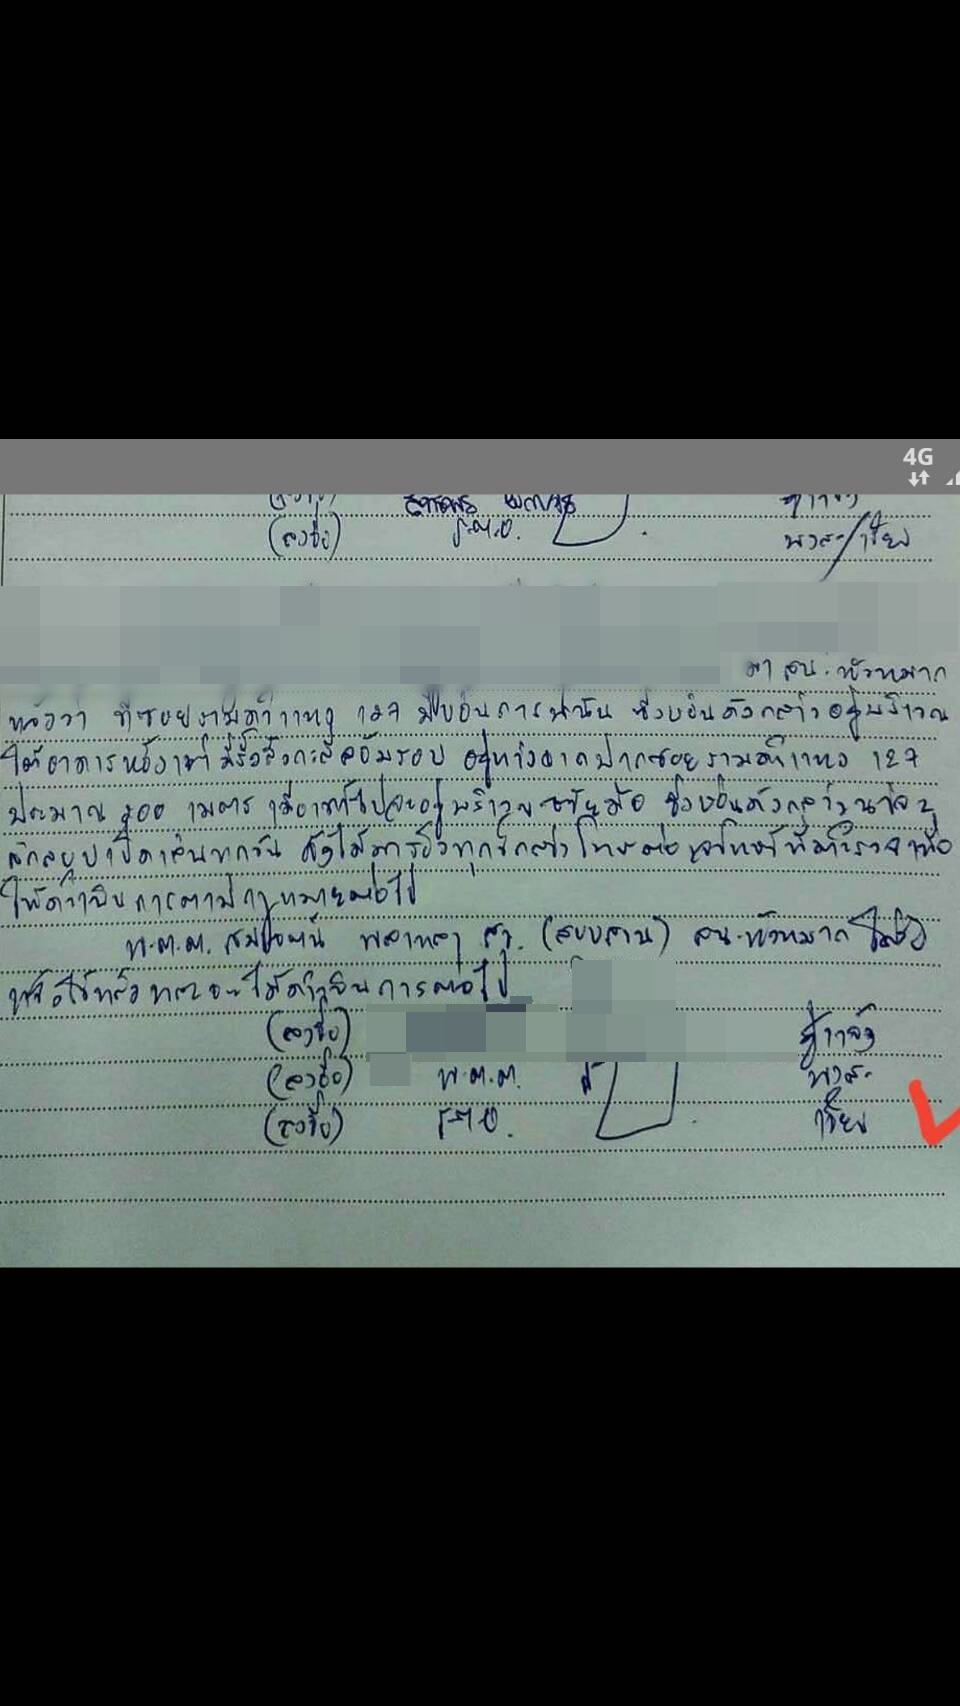 4G
(ลงชื่อ) ร.ต.อ. พงส/เขียน
มา สน.หัวหมาก
แจ้งว่า ที่ซอยรามคำแหง 127 มีบ่อนการพนัน ซึ่งบ่อนดังกล่าวอยู่บริเวณ
ใต้อาคารหลังเก่า มีรั้วสังกะสีล้อมรอบ อยู่ห่างจากปากซอยรามคำแหง 127
ประมาณ 200 เมตร เมื่อเข้าไปจะอยู่บริเวณซ้ายมือ ซึ่งบ่อนดังกล่าว
เปิดเล่นทุกวัน จึงได้มาร้องทุกข์กล่าวโทษต่อเจ้าหน้าที่ตำรวจเพื่อ
ให้ดำเนินการตามกฎหมายต่อไป
พ.ต.ต. สว. (สอบสวน) สน.หัวหมาก ได้รับ
แจ้งไว้แล้ว และจะได้ดำเนินการต่อไป
(ลงชื่อ) ผู้แจ้ง
(ลงชื่อ) พ.ต.ต. พงส.
(ลงชื่อ) ร.ต.อ. เขียน